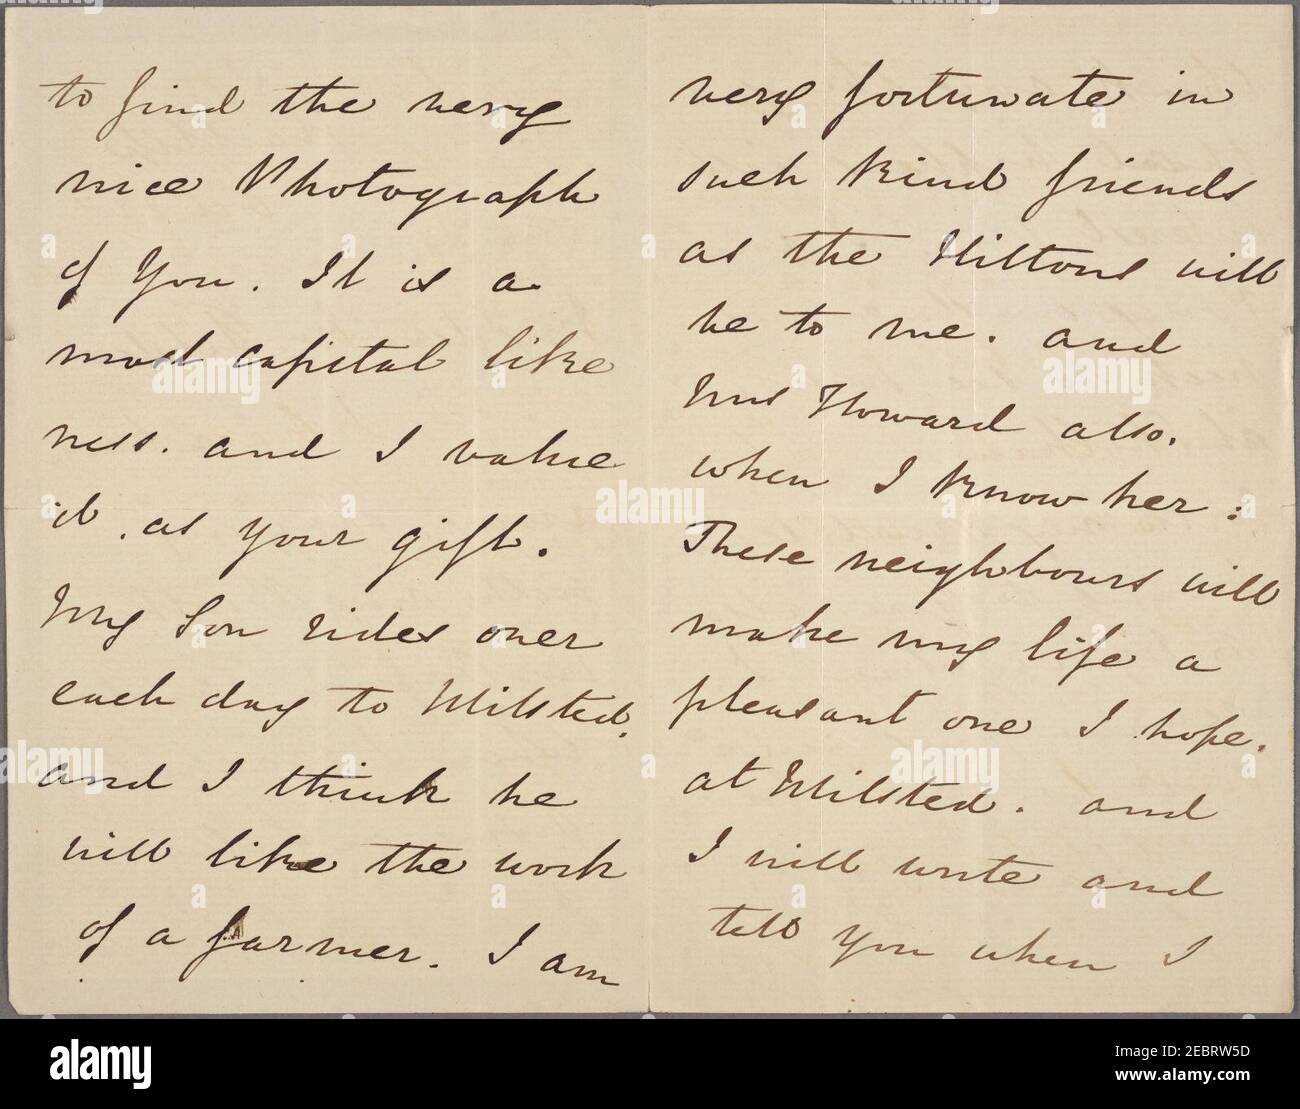 to find the very
nice Photograph
of You. It is a
most capital like
ness. and I value
it. as your gift.
My Son rides over
each day to Milsted.
and I think he
will like the work
of a farmer. I am
very fortunate in
such kind friends
as the Hiltons will
be to me. and
Mrs Howard also.
when I know her:
These neighbours will
make my life a
pleasant one I hope.
at Milsted. and
I will write and
tell you when I
alamy
Image ID: 2EBRW5D
www.alamy.com